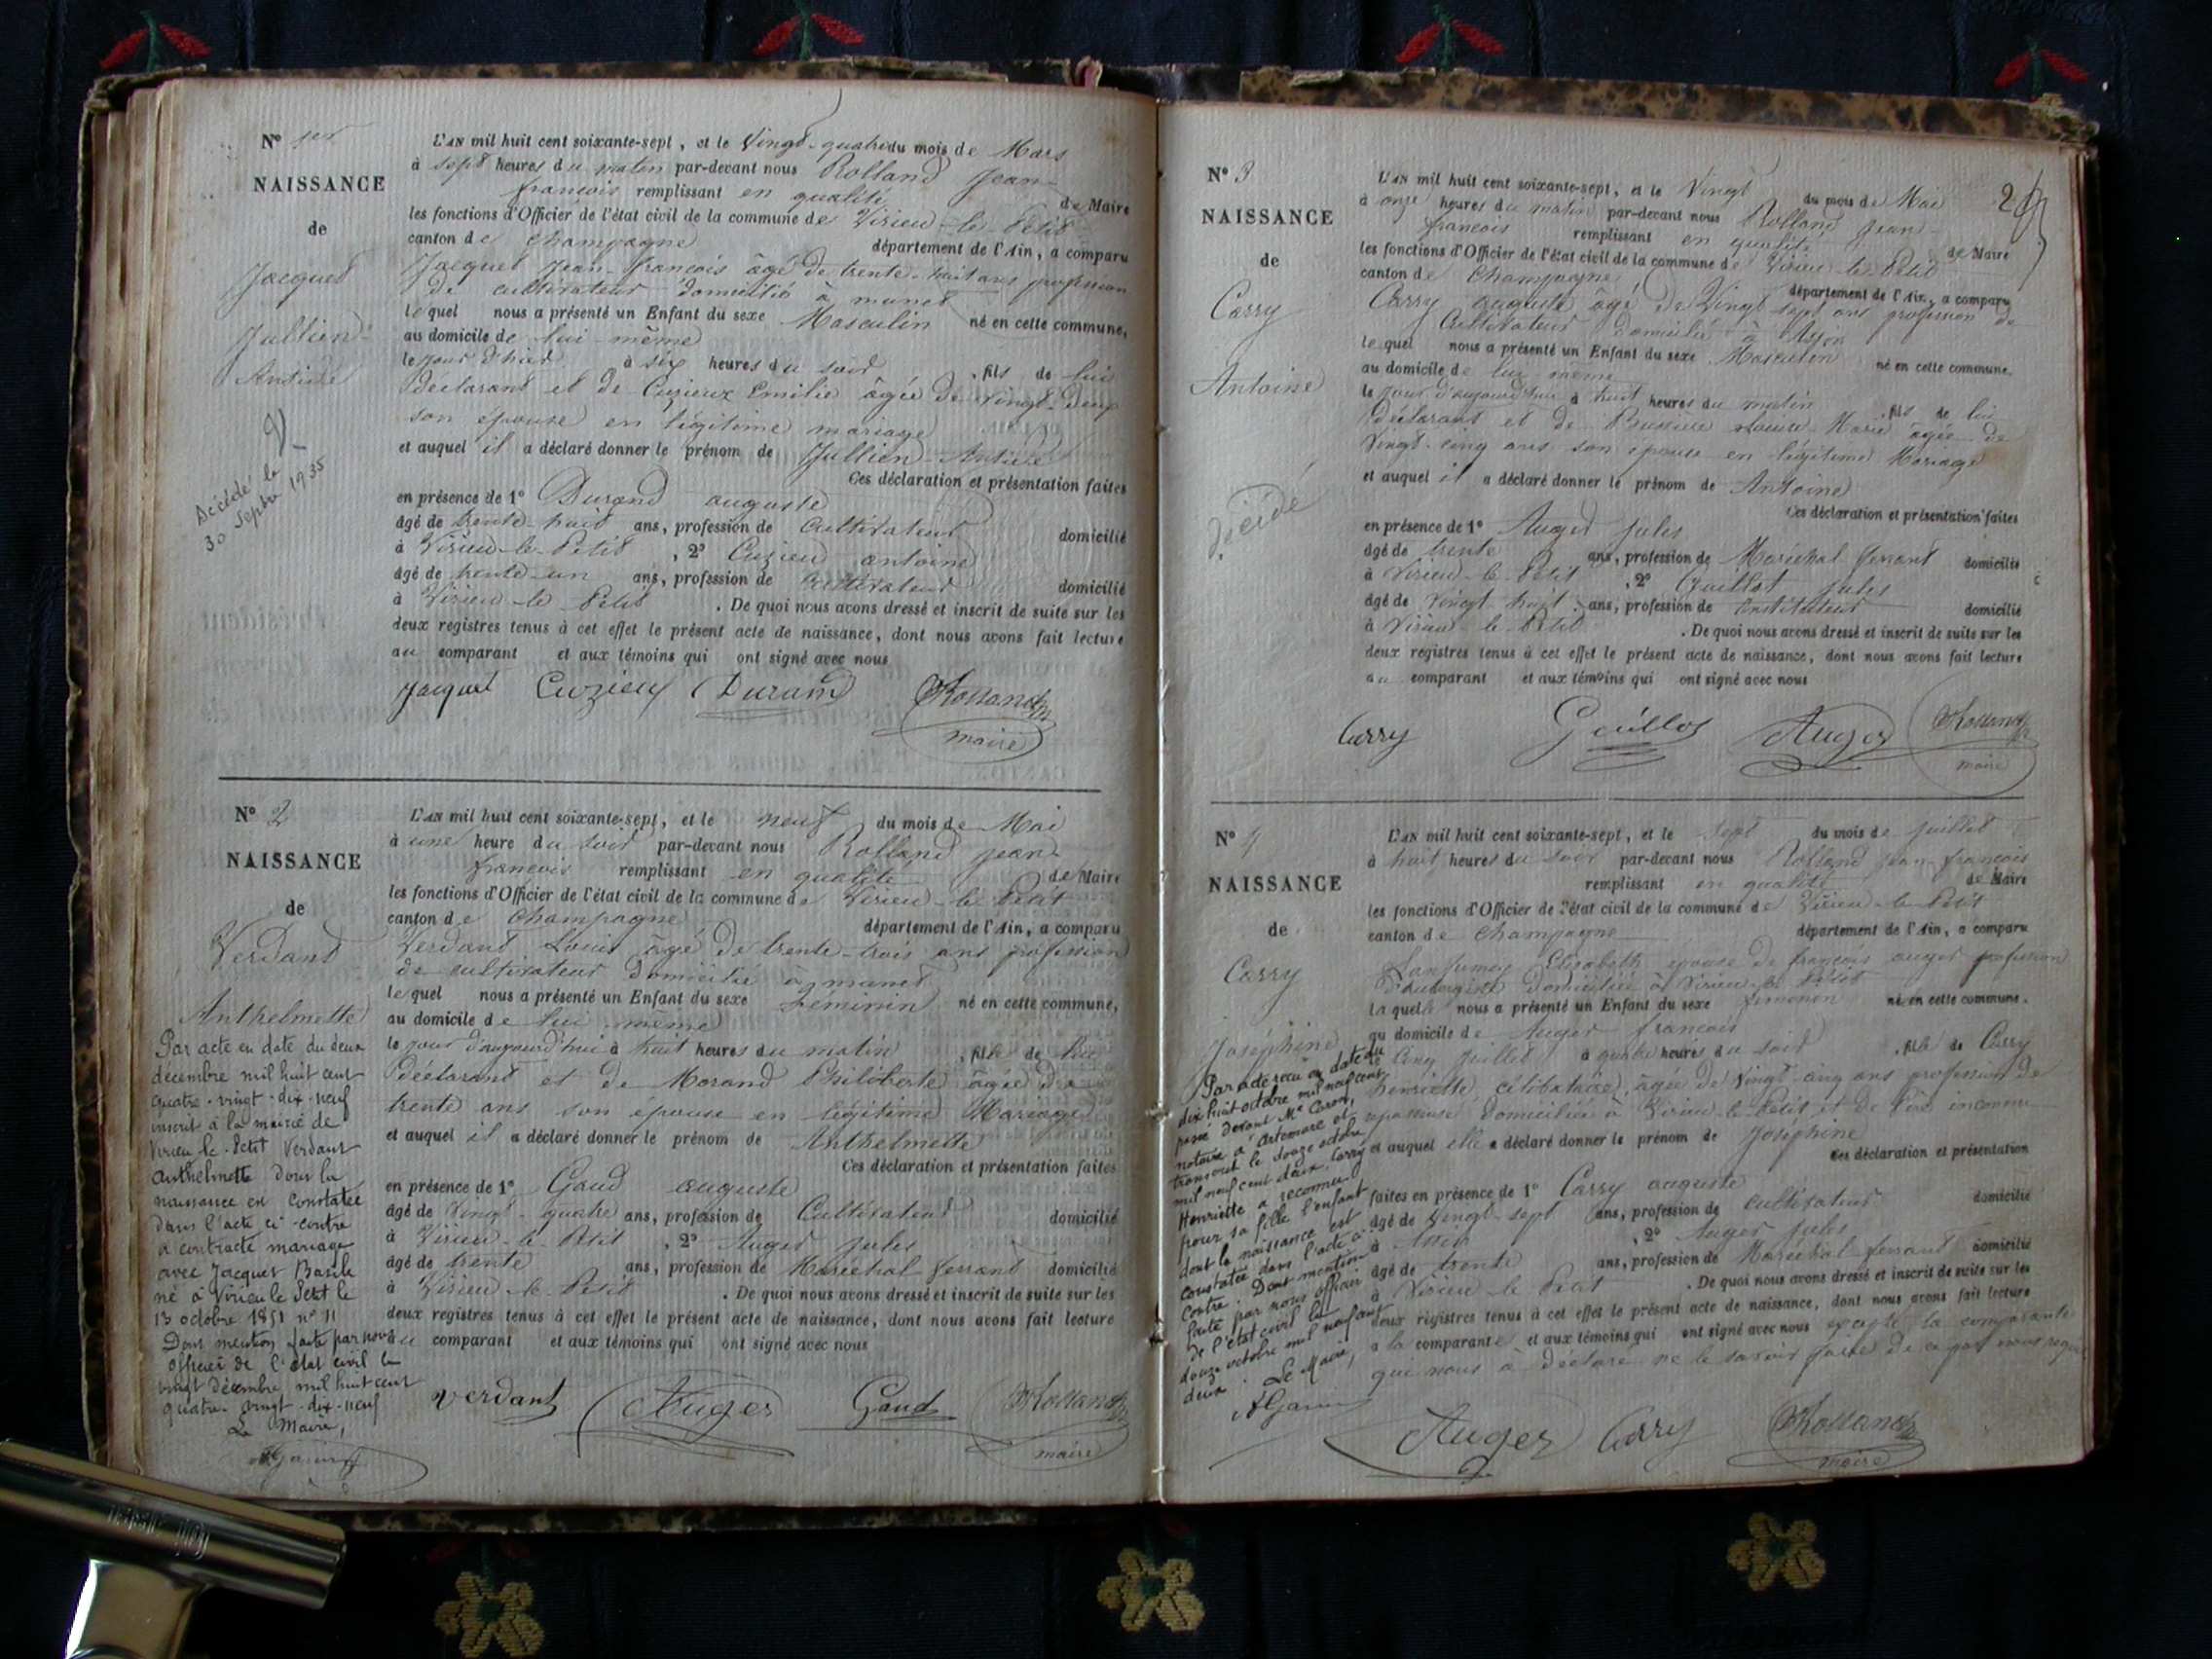 N° 1er
NAISSANCE
de
Jacquet
Jullien
Antide
Décédé le
30 Septbre 1935
L'AN mil huit cent soixante-sept, et le Vingt-quatre du mois de Mars
à sept heures du matin par-devant nous Rolland Jean-
francois remplissant en qualité de Maire
les fonctions d'Officier de l'état civil de la commune de Virieu-le-Petit
canton de Champagne département de l'Ain, a comparu
Jacquet Jean-francois âgé de trente-huit ans profession
de cultivateur domicilié à munet
lequel nous a présenté un Enfant du sexe Masculin né en cette commune,
au domicile de lui-même
le jour d'hier à six heures du soir, fils de lui
Déclarant et de Cuzieux Emilie âgée de Vingt-deux
son épouse en légitime mariage
et auquel il a déclaré donner le prénom de Jullien-Antide
Ces déclaration et présentation faites
en présence de 1° Durand auguste
âgé de trente-huit ans, profession de Cultivateur domicilié
à Virieu-le-Petit, 2° Cuzieu antoine
âgé de trente-un ans, profession de cultivateur domicilié
à Virieu-le-Petit. De quoi nous avons dressé et inscrit de suite sur les
deux registres tenus à cet effet le présent acte de naissance, dont nous avons fait lecture
au comparant et aux témoins qui ont signé avec nous
Jacquet Cuzieux Durand Rolland
maire
N° 2
NAISSANCE
de
Verdant
Anthelmette
Par acte en date du deux
décembre mil huit cent
quatre-vingt-dix-neuf
inscrit à la mairie de
Virieu le-Petit Verdant
Anthelmette dont la
naissance est constatée
dans l'acte ci-contre
a contracté mariage
avec Jacquet Basile
né à Virieu le Petit le
13 octobre 1851 n° 11
Dont mention faite par nous
officier de l'état civil le
vingt décembre mil huit cent
quatre-vingt-dix-neuf
Le Maire,
L'AN mil huit cent soixante-sept, et le neuf du mois de Mai
à une heure du soir par-devant nous Rolland Jean-
francois remplissant en qualité de Maire
les fonctions d'Officier de l'état civil de la commune de Virieu-le-Petit
canton de Champagne département de l'Ain, a comparu
Verdant Louis âgé de trente-trois ans profession
de cultivateur domicilié à munet
lequel nous a présenté un Enfant du sexe féminin né en cette commune,
au domicile de lui-même
le jour d'aujourd'hui à huit heures du matin, fille de lui
déclarant et de Morand Philiberte âgée de
trente ans son épouse en légitime Mariage
et auquel il a déclaré donner le prénom de Anthelmette
Ces déclaration et présentation faites
en présence de 1° Gaud auguste
âgé de Vingt-quatre ans, profession de Cultivateur domicilié
à Virieu-le-Petit, 2° Auger jules
âgé de trente ans, profession de Maréchal ferrant domicilié
à Virieu-le-Petit. De quoi nous avons dressé et inscrit de suite sur les
deux registres tenus à cet effet le présent acte de naissance, dont nous avons fait lecture
au comparant et aux témoins qui ont signé avec nous
verdant Auger Gaud Rolland
maire
N° 3
NAISSANCE
de
Carry
Antoine
Décédé
L'AN mil huit cent soixante-sept, et le Vingt du mois de Mai
à onze heures du matin par-devant nous Rolland Jean-
francois remplissant en qualité de Maire
les fonctions d'Officier de l'état civil de la commune de Virieu-le-Petit
canton de Champagne département de l'Ain, a comparu
Carry auguste âgé de Vingt sept ans profession de
Cultivateur domicilié à Assin
lequel nous a présenté un Enfant du sexe Masculin né en cette commune
au domicile de lui même
le jour d'aujourd'hui à huit heures du matin, fils de lui
déclarant et de Marie âgée de
Vingt-cinq ans son épouse en légitime Mariage
et auquel il a déclaré donner le prénom de Antoine
Ces déclaration et présentation faites
en présence de 1° Auger jules
âgé de trente ans, profession de Maréchal ferrant domicilié
à Virieu-le-Petit, 2° Guillot jules
âgé de vingt huit ans, profession de instituteur domicilié
à Virieu-le-Petit. De quoi nous avons dressé et inscrit de suite sur les
deux registres tenus à cet effet le présent acte de naissance, dont nous avons fait lecture
au comparant et aux témoins qui ont signé avec nous
Carry Guillot Auger Rolland
maire
N° 4
NAISSANCE
de
Carry
Joséphine
Par acte reçu en date du
dix huit octobre mil neuf cent
passé devant Me
notaire à Artemare et
transcrit le douze octobre
mil neuf cent deux, Carry
Henriette a reconnu
pour sa fille l'enfant
dont la naissance est
constatée dans l'acte ci-
contre. Dont mention
faite par nous officier
de l'état civil le
douze octobre mil neuf cent
deux. Le Maire,
L'AN mil huit cent soixante-sept, et le sept du mois de juillet
à huit heures du soir par-devant nous Rolland jean-francois
remplissant en qualité de Maire
les fonctions d'Officier de l'état civil de la commune de Virieu-le-Petit
canton de Champagne département de l'Ain, a comparu
Elisabeth épouse de françois auger profession
domiciliée à Virieu-le-Petit
laquelle nous a présenté un Enfant du sexe féminin né en cette commune,
au domicile de Auger francois
le cinq juillet à quatre heures du soir, fille de Carry
henriette, célibataire, âgée de vingt-cinq ans profession de
domiciliée à Virieu-le-Petit et de Père inconnu
et auquel elle a déclaré donner le prénom de Joséphine
Ces déclaration et présentation
faites en présence de 1° Carry auguste
âgé de vingt-sept ans, profession de cultivateur domicilié
à Assin, 2° Auger jules
âgé de trente ans, profession de Maréchal-ferrant domicilié
à Virieu-le-Petit. De quoi nous avons dressé et inscrit de suite sur les
deux registres tenus à cet effet le présent acte de naissance, dont nous avons fait lecture
a la comparante et aux témoins qui ont signé avec nous excepté la comparante
qui nous a déclaré ne le savoir faire de ce par nous requise
Auger Carry Rolland
maire